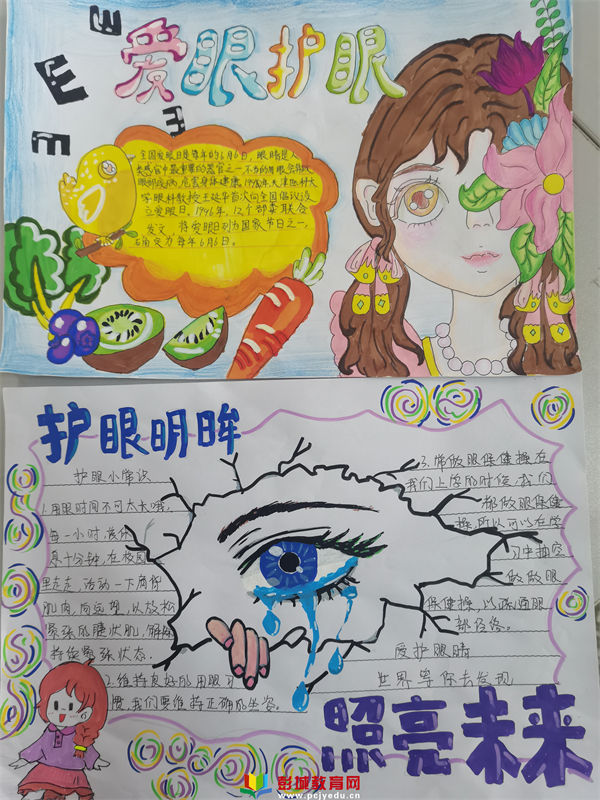 爱眼护眼
全国爱眼日是每年的6月6日，眼睛是人
类感官中最重要的器官之一不当的用眼会导致
眼部疾病，危害身体健康。1992年，天津医科大
学眼科教授王延华首次向全国倡议设
立爱眼日。1996年，12个部委联合
发文，将爱眼日列为国家节日之一，
确定为每年6月6日。
护眼明眸
护眼小常识
1.用眼时间不可太长哦，
每一小时
息十分钟，在校园
里走走，活动一下肩部
肌肉，向远望，以放松
紧张的睫状肌，解除
持续紧张状态。
2.维持良好的用眼习
惯，我们要维持正确的坐姿。
3.常做眼保健操在
我们上课的时候，我们
都做眼保健
操，所以可以在学
习中抽空
做做眼
保健操，以疏通眼
部经络。
爱护眼睛
世界等你去发现
照亮未来
彭城教育网
www.pcjyedu.cn